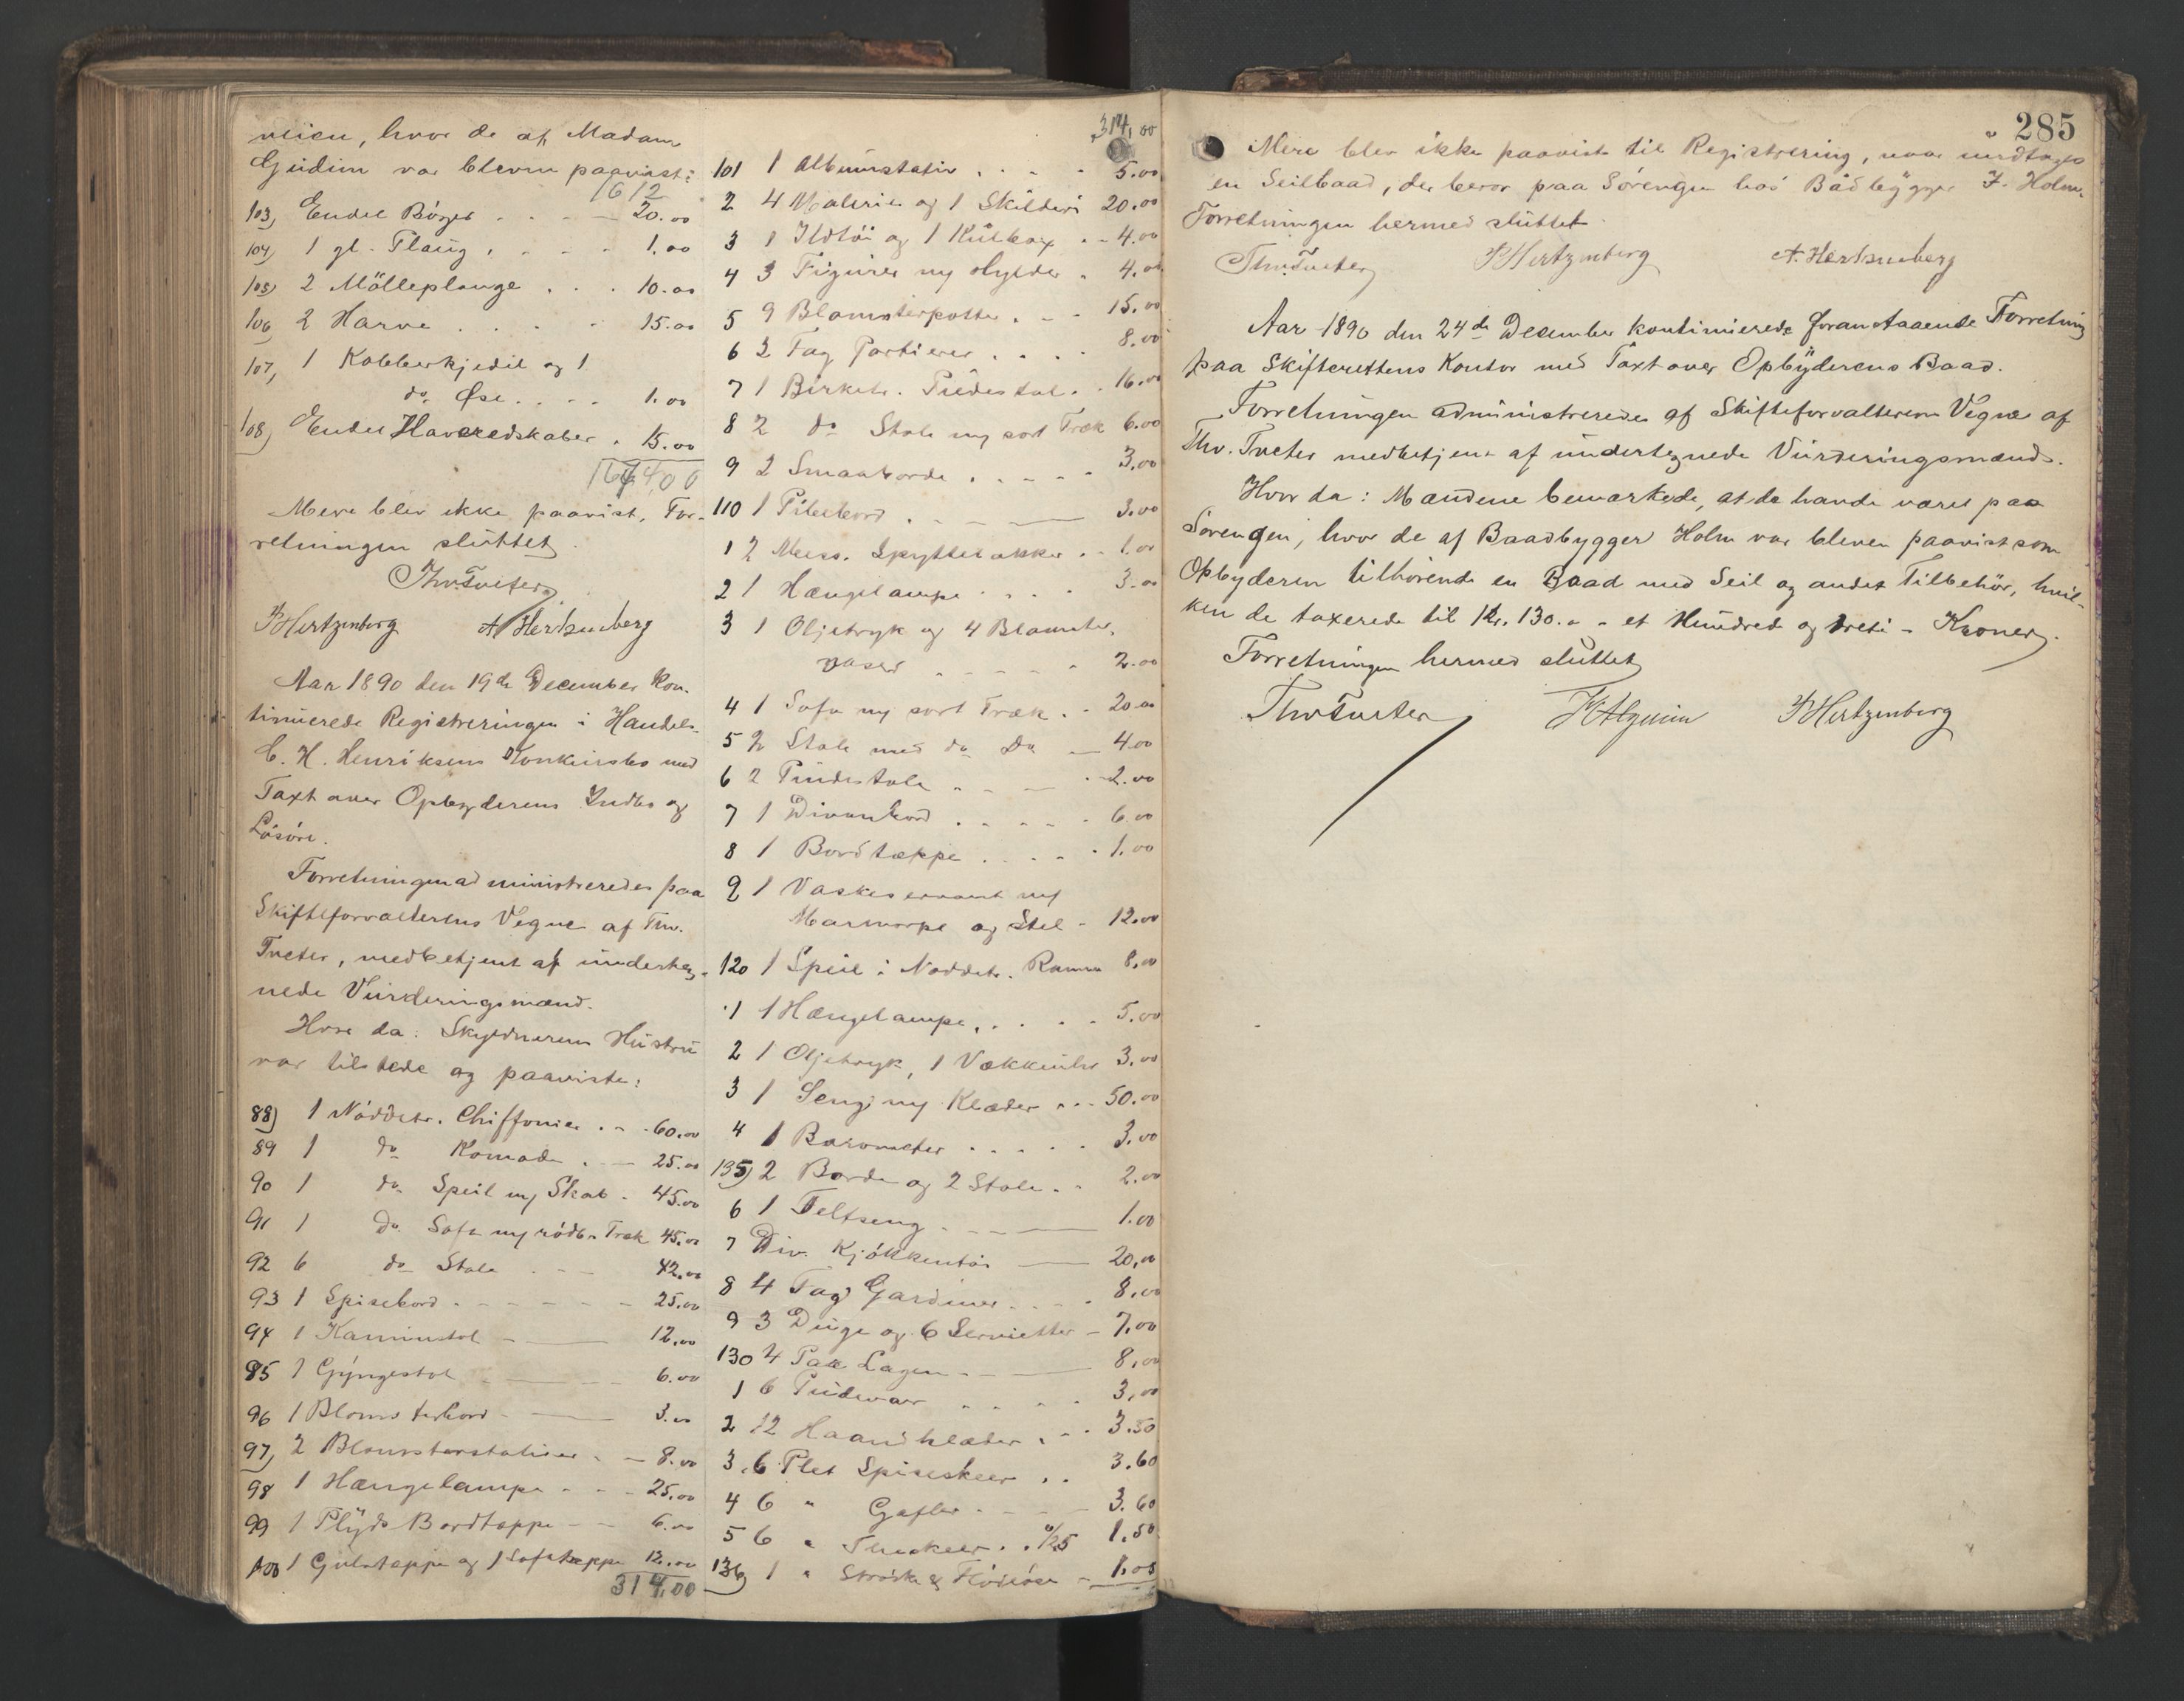 veien, hvor de af Madam
Gudim var bleven paavist:
1612
103) Endel Bøger 20.00
104) 1 gl. Plaug 1.00
105) 2 Mölleplouge 10.00
106 2 Harve 15.00
107, 1 Kobberkjedel og 1
do Øse 1.00
108) Endel Haveredskaber 15.00
1674,00
Mere blev ikke paavist, For-
retningen sluttet
Thv. Tveter
P Hertzenberg A. Hertzenberg
Aar 1890 den 19de December kon-
tinuerede Registreringen i Handels.
C. H. Henriksens Konkursbo med
Taxt over Opbyderens Indbo og
Løsøre.
Forretningen administreredes paa
Skifteforvalterens Vegne af Thv.
Tveter, medbetjent af underteg-
nede Vurderingsmænd.
Hvor da: Skyldnerens Hustru
var tilstede og paaviste:
88) 1 Nøddetr. Chiffonier 60.00
89 1 do Komode 25.00
90 1 do Speil m/ Skab 45.00
91 1 do Sofa m/ rødbr. Træk 45.00
92 6 do Stole 42.00
93 1 Spisebord 25.00
94 1 Kaminstol 12.00
95 1 Gyngestol 6.00
96 1 Blomsterbord 3.00
97, 2 Blomsterstativer 8.00
98 1 Hængelampe 25.00
99 1 Plyds Bordtæppe 6.00
100 1 Gulvtæppe og 1 Sofatæppe 12.00
314,00
314,00
101 1 Albumstativ 5.00
2 4 Malerier og 1 Skilderi 20.00
3 1 Ildtøi og 1 Kulbox 4.00
4 3 Figurer m/ Hylder 4.00
5 9 Blomsterpotter 15.00
6 2 Fag Portierer 8.00
7 1 Birketr. Pidestal 16.00
8 2 do Stole m/ sort Træk 6.00
9 2 Smaaborde 3.00
110 1 Pibebord 3.00
1 2 Mess. Spyttebakker 1.00
2 1 Hængelampe 3.00
3 1 Oljetryk og 4 Blomster-
vaser 2.00
4 1 Sofa m/ sort Træk 20.00
5 2 Stole med do Do 4.00
6 2 Pindestole 2.00
7 1 Divanbord 6.00
8 1 Bordtæppe 1.00
9 1 Vaskeservant m/
Marmorpl og Stel 12.00
120 1 Speil i Nøddetr. Ramme 8.00
1 1 Hængelampe 5.00
2 1 Oljetryk, 1 Vækkeuhr 3.00
3 1 Seng m/ Klæder 50.00
4 1 Barometer 3.00
135) 2 Borde og 2 Stole 2.00
6 1 Feltseng 1.00
7 Div. Kjøkkentøi 20.00
8 4 Fag Gardiner 8.00
9 3 Duge og 6 Servietter 7.00
130 4 Par Lagen 8.00
1 6 Pudevaar 3.00
2 12 Haandklæder 3.50
3 6 Plet Spiseskeer 3.60
4 6 " Gafler 3.60
5 6 " Theskeer á/25 1.50
136) 1 " Strøske & Fløteøse 1.00
285
Mere blev ikke paavist til Registrering, naar undtages
en Seilbaad, der beror paa Sørengen hos Bådbygger J. Holm.
Forretningen hermed sluttet
Thv. Tveter P Hertzenberg A. Hertzenberg
Aar 1890 den 24de December kontinuerede foranstaaende Forretning
paa Skifterettens Kontor med Taxt over Opbyderens Baad.
Forretningen administreredes af Skifteforvalterens Vegne af
Thv. Tveter medbetjent af undertegnede Vurderingsmænd.
Hvor da: Mændene bemærkede, at de havde været paa
Sørengen, hvor de af Baadbygger Holm var bleven paavist som
Opbyderen tilhørende en Baad med Seil og andet Tilbehør, hvil-
ken de taxerede til Kr. 130.- et Hundrede og treti - Kroner.
Forretningen hermed sluttet
Thv Tveter P Hertzenberg